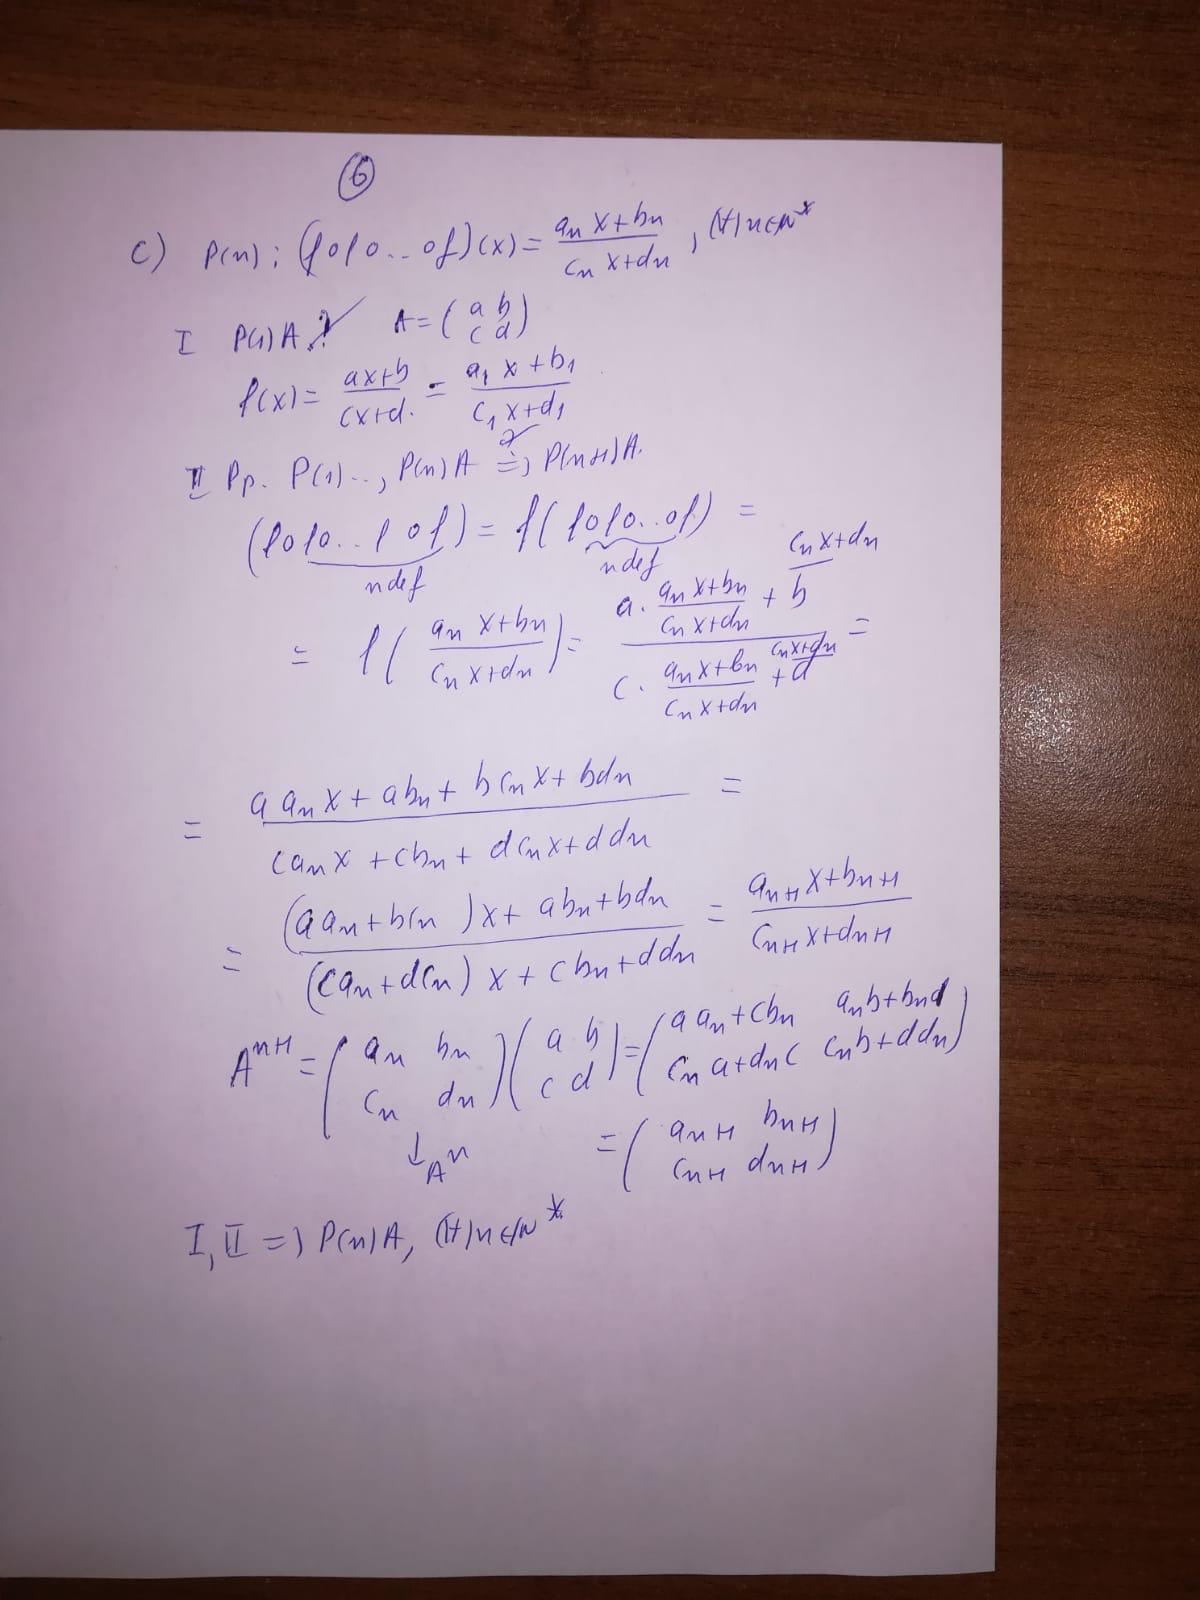 6
c) P(n): (fofo...of)(x) = (an x+bn)/(cn x+dn), (∀)n∈N*
I P(1)A? A = (a b; c d)
f(x) = (ax+b)/(cx+d) = (a1 x+b1)/(c1 x+d1)
II Pp. P(1)..., P(n)A ?=> P(n+1)A.
(fofo...fof) = f(fofo...of) =
n def n def
= f((an x+bn)/(cn x+dn)) = (a·(an x+bn)/(cn x+dn) + cn x+dn/b)/(c·(an x+bn)/(cn x+dn) + cn x+dn/d) =
= (a an x + abn + b cn x + bdn)/(can x + cbn + dcn x + ddn) =
= ((a an + bcn)x + abn + bdn)/((can + dcn)x + cbn + ddn) = (an+1 x+bn+1)/(cn+1 x+dn+1)
A^n+1 = (an bn; cn dn)(a b; c d) = (a an + cbn anb + bnd; cn a + dnc cnb + ddn)
↓ A^n = (an+1 bn+1; cn+1 dn+1)
I, II => P(n)A, (∀)n∈N*